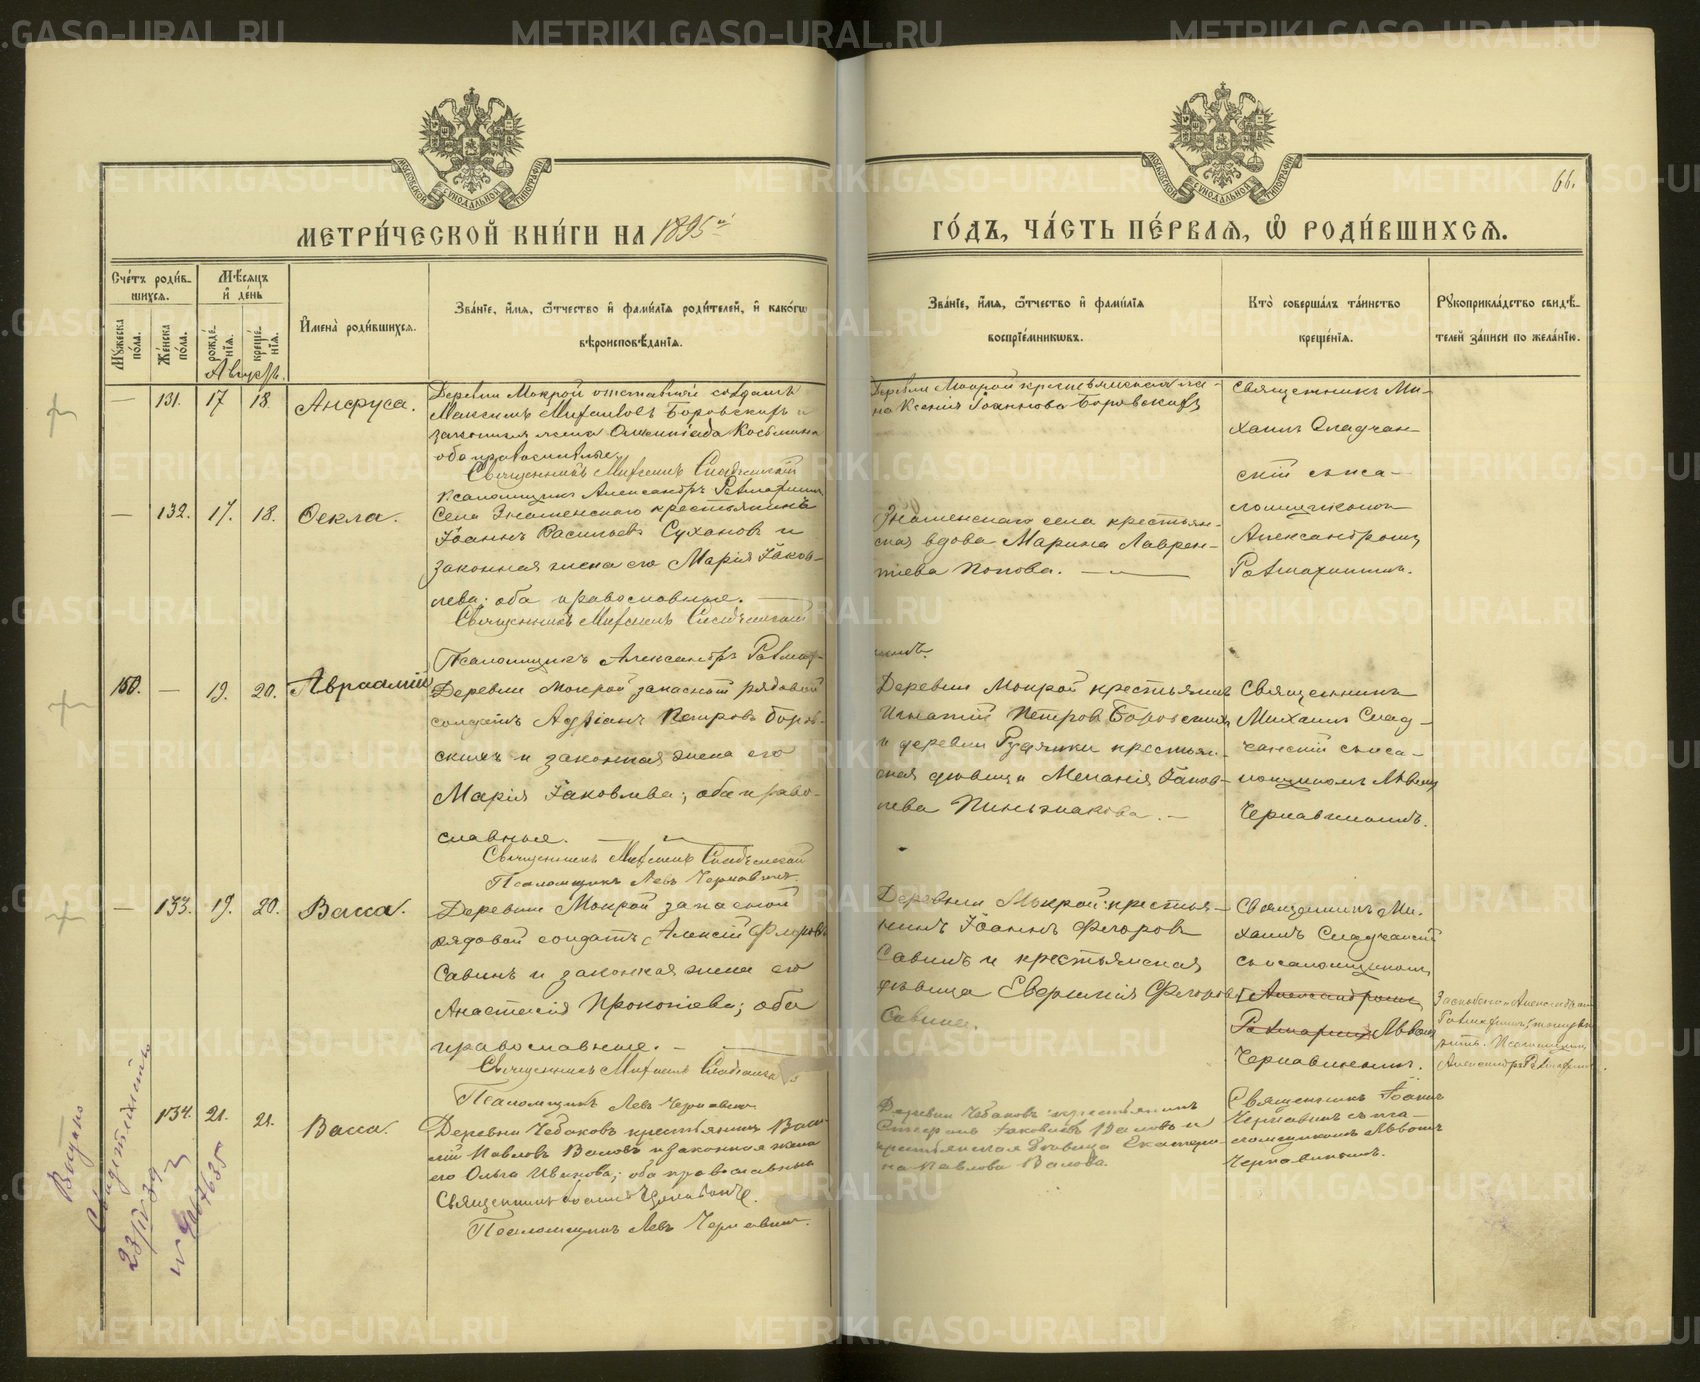 МЕТРИ́ЧЕСКОЙ КНИ́ГИ НА 1895й
ГО́ДЪ, ЧА́СТЬ ПЕ́РВАѦ, Ѡ҆ РОДИ́ВШИХСѦ.
66.
Счє́тъ роди́в-
шихсѧ.
Мꙋжеска по́ла.
Же́нска по́ла.
Мѣ́сѧцъ и҆ де́нь
рождє́-нїѧ.
крещє́-нїѧ.
И҆мена̀ роди́вшихсѧ.
Зва́нїе, и҆́мѧ, ѻ҆́тчество и҆ фами́лїѧ роди́телей, и҆ како́гѡ
вѣроисповѣ́данїѧ.
Зва́нїе, и҆́мѧ, ѻ҆́тчество и҆ фами́лїѧ
воспрїе́мникѡвъ.
Кто̀ соверша́лъ та́инство
креще́нїѧ.
Рꙋкоприкла́дство свидѣ́-
телей за́писи по жела́нїю.
Августъ.
— 131. 17 18. Анфуса.
Деревни Мокрой отставной солдатъ
Максимъ Михаиловъ Боровскихъ и
законная жена Олимпіада Косьмина
оба православные.
Священникъ Михаилъ Сладчанскій
Псаломщикъ Александръ
Деревни Мокрой крестьянская же-
на Ксенія Іоаннова Боровскихъ
Священникъ Ми-
хаилъ Сладчан-
скій съ пса-
ломщикомъ
Александромъ
— 132. 17. 18. Ѳекла.
Села Знаменского крестьянинъ
Іоаннъ Васильевъ Сухановъ и
законная жена его Марія Іаков-
лева; оба православные. —
Священникъ Михаилъ Сладчанскій
Псаломщикъ Александръ
Знаменскаго села крестьян-
ская вдова Марина Лаврен-
тіева Попова. —
150. — 19. 20. Авраамій
Деревни Мокрой запасной рядовой
солдатъ Адріанъ Петровъ Боров-
скихъ и законная жена его
Марія Іаковлева; оба право-
славные. —
Священникъ Михаилъ Сладчанскій
Псаломщикъ Левъ Чернавинъ.
Деревни Мокрой крестьянинъ
Игнатій Петровъ Боровскихъ
и деревни Рудянки крестьян-
ская дѣвица Меланія Іаков-
лева
Священникъ
Михаилъ Слад-
чанскій съ пса-
ломщикомъ Львомъ
Чернавинымъ.
— 133. 19. 20. Васса.
Деревни Мокрой запасной
рядовой солдатъ Алексій Ѳедоровъ
Савинъ и законная жена его
Анастасія Прокопіева; оба
православные. —
Священникъ Михаилъ Сладчанскій
Псаломщикъ Левъ Чернавинъ
Деревни Мокрой крестья-
нинъ Іоаннъ Ѳедоровъ
Савинъ и крестьянская
дѣвица Евфимія Ѳедорова
Савина.
Священникъ Ми-
хаилъ Сладчанскій
съ псаломщикомъ
Александромъ
Львомъ
Чернавинымъ.
Псаломщикъ
Александръ
134. 21. 21. Васса.
Деревни Чебаковъ крестьянинъ Васи-
лій Павловъ Валовъ и законная жена
его Ольга Иванова; оба православные
Священникъ Іоаннъ
Псаломщикъ Левъ Чернавинъ.
Деревни Чебаковъ крестьянинъ
Стефанъ Іаковлевъ Валовъ и
крестьянская дѣвица Екатери-
на Павлова Валова.
Священникъ Іоаннъ
Чернавинъ съ пса-
ломщикомъ Львомъ
Чернавинымъ.
Выдано
свидетельство
23/IV 39
METRIKI.GASO-URAL.RU